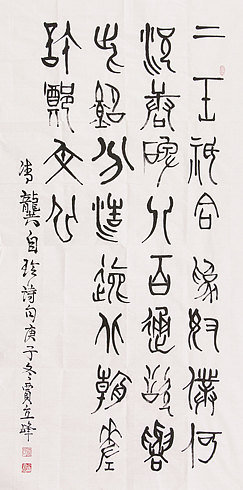 二王祇合為奴僕何
況唐碑八百通欲與
此銘分浩逸北朝差
許鄭文公
書龔自珍詩句庚子冬賈立峰